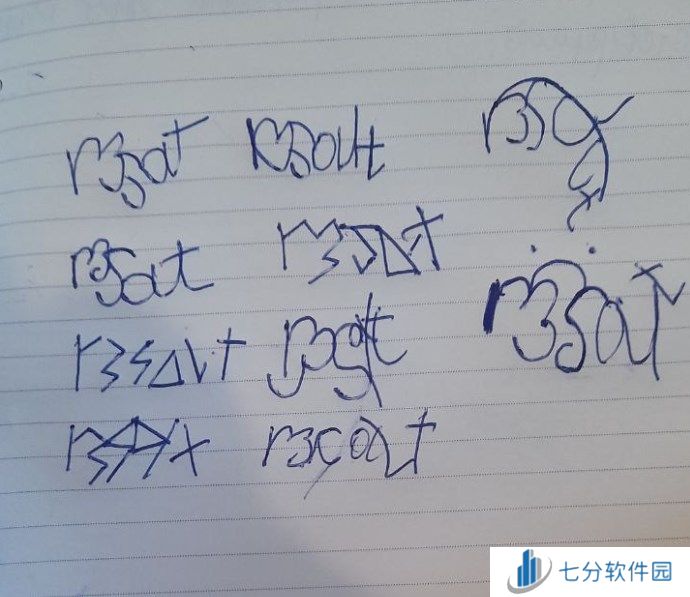 r3sat r3sat r3sat
r3sat r3sat r3sat
r3sat r3sat
r3sat r3sat
七分软件园